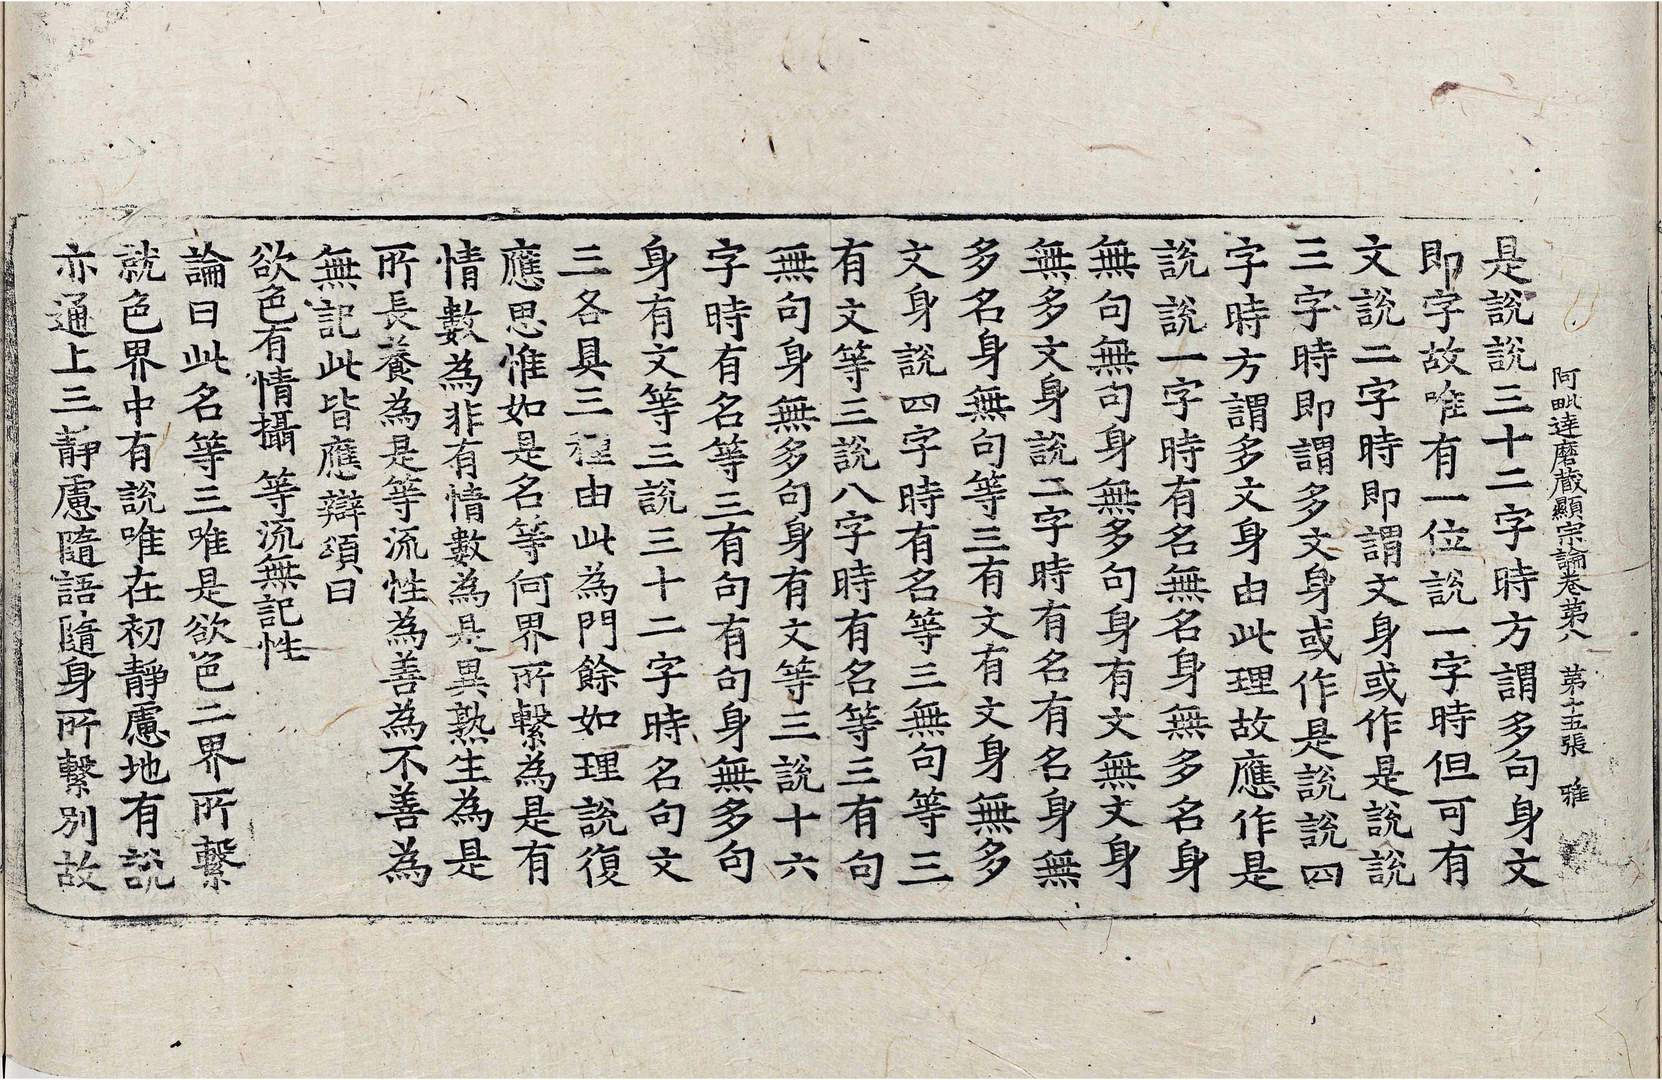 阿毗達磨藏顯宗論卷第八 第十五張 雅
是說說三十二字時方謂多句身文
即字故唯有一位說一字時但可有
文說二字時即謂文身或作是說說
三字時即謂多文身或作是說說四
字時方謂多文身由此理故應作是
說說一字時有名無名身無多名身
無句無句身無多句身有文無文身
無多文身說二字時有名有名身無
多名身無句等三有文有文身無多
文身說四字時有名等三無句等三
有文等三說八字時有名等三有句
無句身無多句身有文等三說十六
字時有名等三有句有句身無多句
身有文等三說三十二字時名句文
三各具三種由此為門餘如理說復
應思惟如是名等何界所繫為是有
情數為非有情數為是異熟生為是
所長養為是等流性為善為不善為
無記此皆應辯頌曰
欲色有情攝 等流無記性
論曰此名等三唯是欲色二界所繫
就色界中有說唯在初靜慮地有說
亦通上三靜慮隨語隨身所繫別故